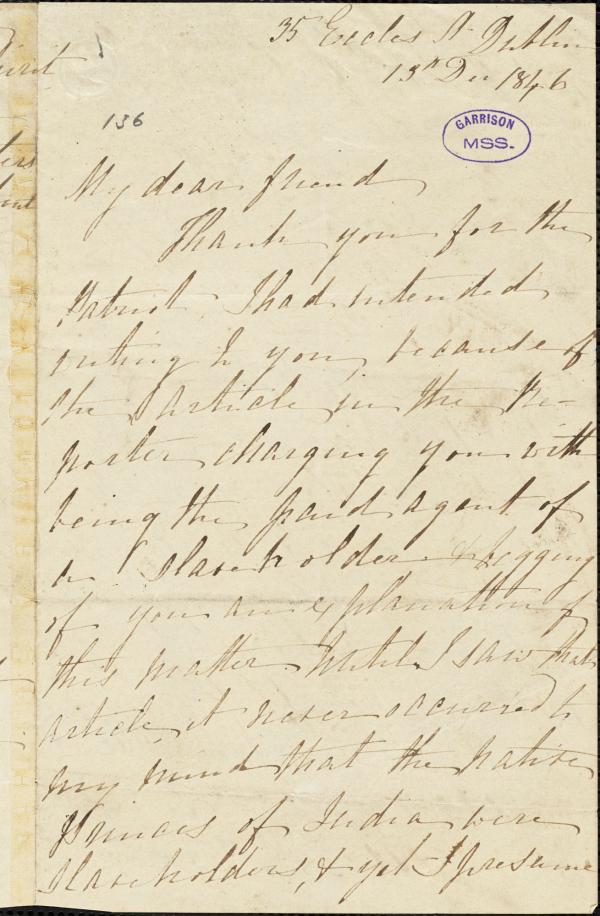 35 Eccles St Dublin
13th Dec 1846
136
GARRISON
MSS.
My dear friend
Thank you for the
Patriot. I had intended
writing to you, because of
the article in the Re-
porter charging you with
being the paid agent of
a slaveholder & begging
of you an explanation of
this matter. Until I saw that
article, it never occurred to
my mind that the native
Princes of India were
slaveholders, & yet I presume